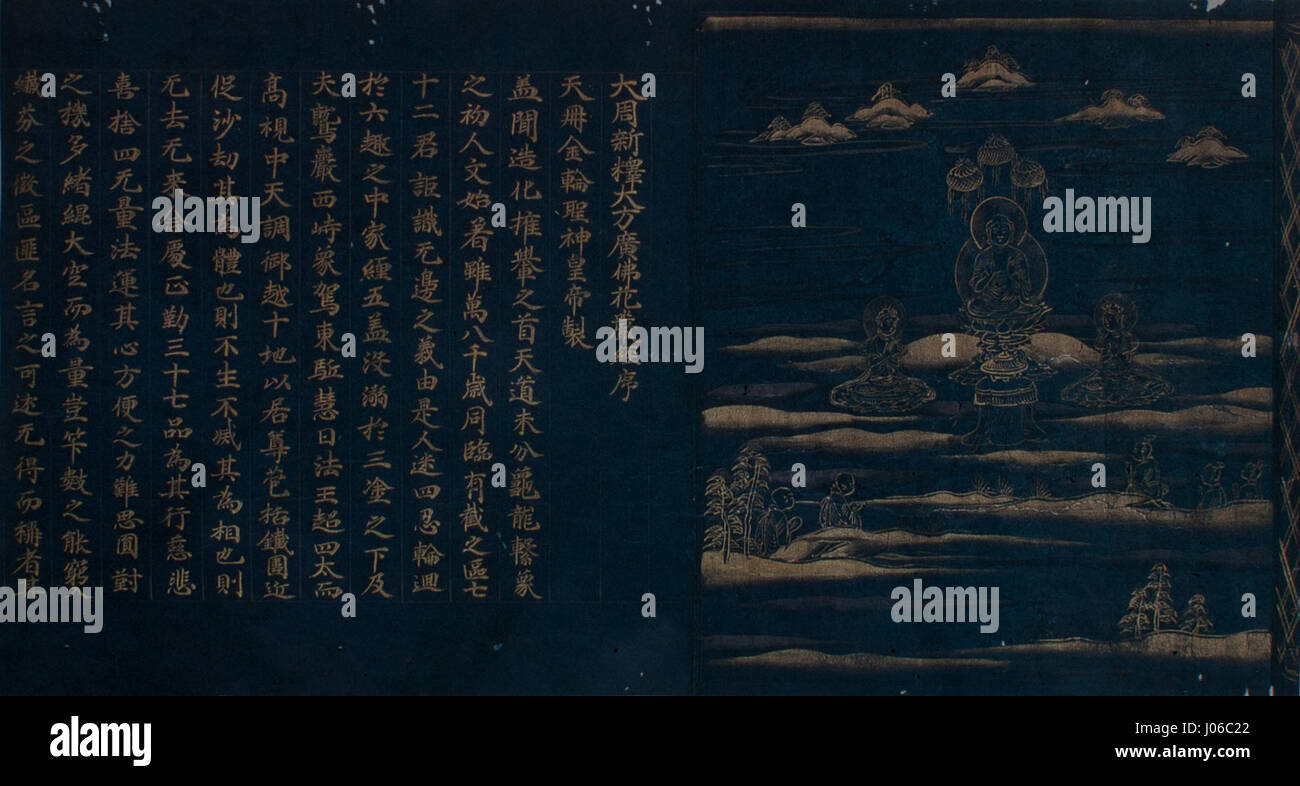 大周新釋大方廣佛花嚴經序
天冊金輪聖神皇帝製
盖聞造化權輿之首天道未分龜龍繫象
之初人文始著雖萬八千歲同臨有截之區七
十二君詎識无邊之義由是人迷四忍輪迴
於六趣之中家纏五盖没溺於三塗之下及
夫鷲巖西峙象駕東駈慧日法王超四大而
高視中天調御越十地以居尊苞括鐵圍近
促沙劫其為體也則不生不滅其為相也則
无去无来念處正勤三十七品為其行慈悲
喜捨四无量法運其心方便之力難思圓對
之機多緒緄大空而為量豈笇數之能窮入
纖芥之微區匪名言之可述无得而稱者其
alamy
alamy
alamy
alamy
alamy
Image ID: J06C22
www.alamy.com